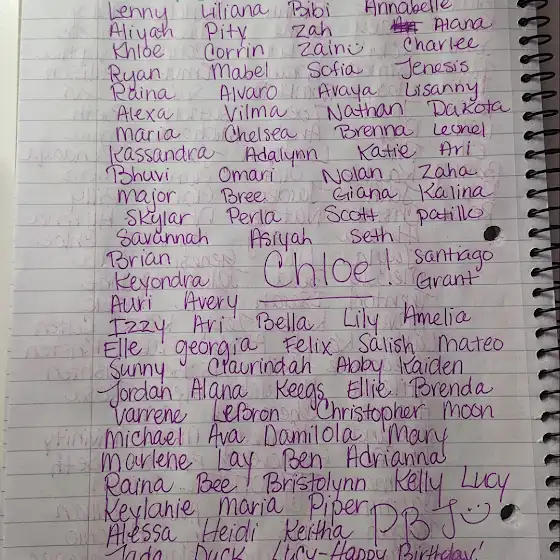 Lenny Liliana Bibi Annabelle
Aliyah Pity Zah Alana
Khloe Corrin Zaini Charlee
Ryan Mabel Sofia Jenesis
Raina Alvaro Avaya Lisanny
Alexa Vilma Nathan Dakota
Maria Chelsea Brenna Leonel
Kassandra Adalynn Katie Ari
Bhuvi Omari Nolan Zaha
Major Bree Giana Kalina
Skylar Perla Scott Patillo
Savannah Asiyah Seth
Brian Chloe! Santiago
Keyondra Grant
Auri Avery
Izzy Ari Bella Lily Amelia
Elle georgia Felix Salish Mateo
Sunny Claurindah Abby Kaiden
Jordan Alana Keegs Ellie Brenda
Varrene LeBron Christopher Moon
Michael Ava Damilola Mary
Marlene Lay Ben Adrianna
Raina Bee Bristolynn Kelly Lucy
Keylanie Maria Piper PBJ
Alessa Heidi Keitha
Jada Duck Lucy-Happy Birthday!